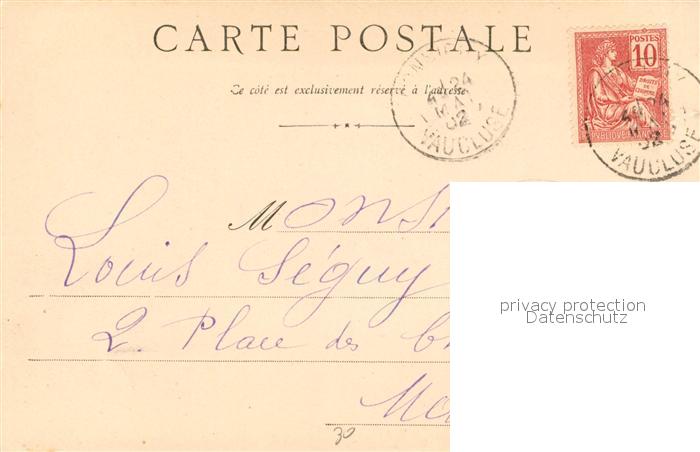 CARTE POSTALE
Ce côté est exclusivement réservé à l'adresse
24
MAI
02
VAUCLUSE
POSTES
10
DROITS DE L'HOMME
RÉPUBLIQUE FRANÇAISE
24
02
VAUCLUSE
Mons
Louis Séguy
2. Place des
30
privacy protection
Datenschutz